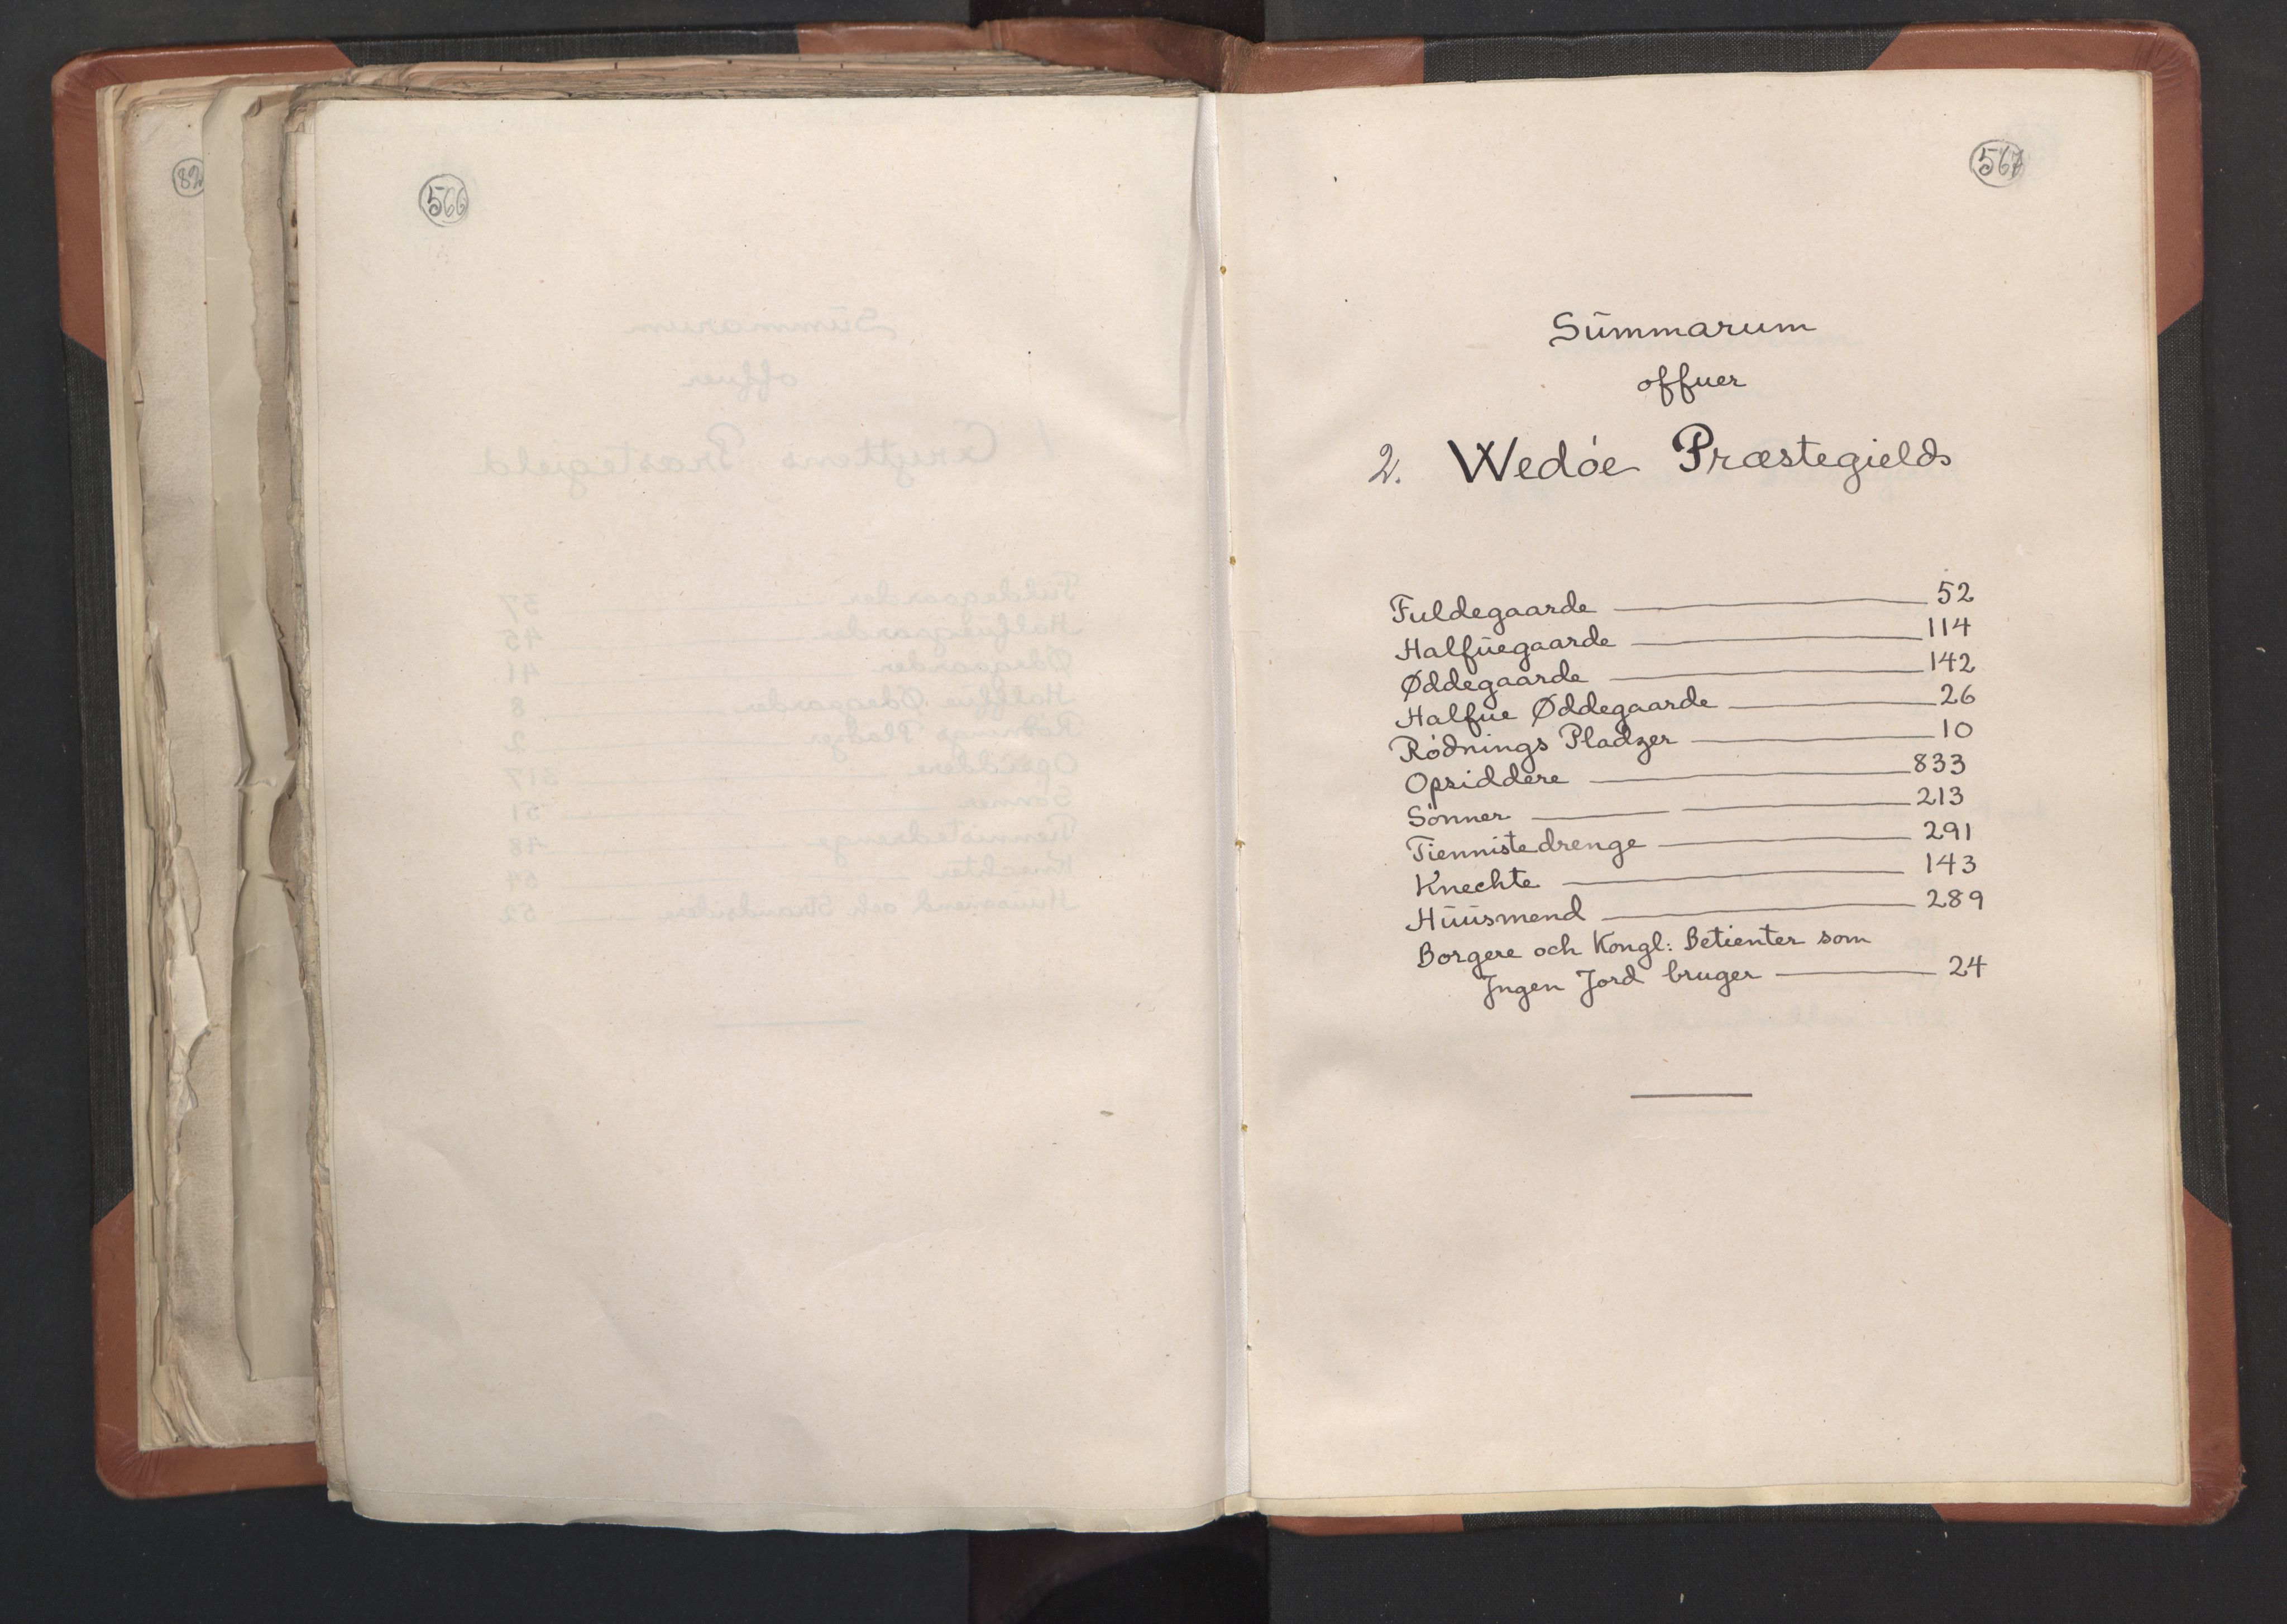 82
566
567
Sūmmarum
offuer
2. Wedóe Præstegields
Fuldegaarde 52
Halfūegaarde 114
Øddegaarde 142
Halfue Øddegaarde 26
Ródnings Pladzer 10
Opsiddere 833
Sönner 213
Tiennistedrenge 291
Knechte 143
Hūūsmend 289
Borgere och Kongl: Betienter som
Jngen Jord bruger 24